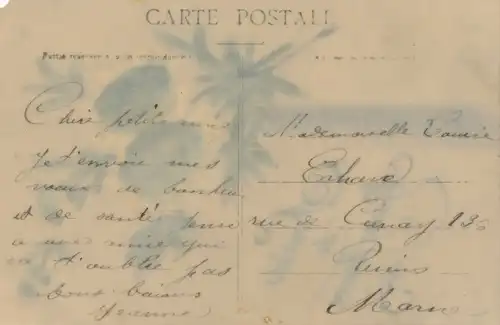 CARTE POSTALE
Partie réservée à la correspondance
Chère petite amie
je t'envoie mes
vœux de bonheur
et de santé
a une amie qui
ne t'oublie pas
bons baisers
Jeanne
Mademoiselle Louise
Erhard
rue de Cernay 13
Reims
Marne